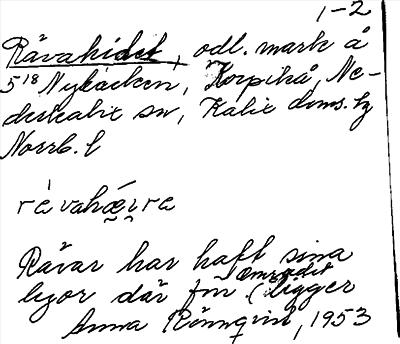 1-2
Rävahidet, odl. mark å
5¹⁸ Nybacken, Korpikå, Ne-
derkalix sn, Kalix doms. tg
Norrb. l
Rävar har haft sina
lyor där för (området ligger
Anna Rönnqvist, 1953